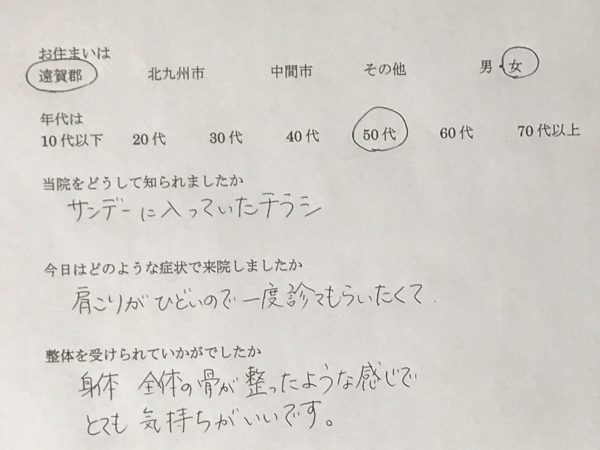 お住まいは
遠賀郡 北九州市 中間市 その他 男・女
年代は
10代以下 20代 30代 40代 50代 60代 70代以上
当院をどうして知られましたか
サンデーに入っていたチラシ
今日はどのような症状で来院しましたか
肩こりがひどいので一度診てもらいたくて
整体を受けられていかがでしたか
身体 全体の骨が整ったような感じで
とても気持ちがいいです。